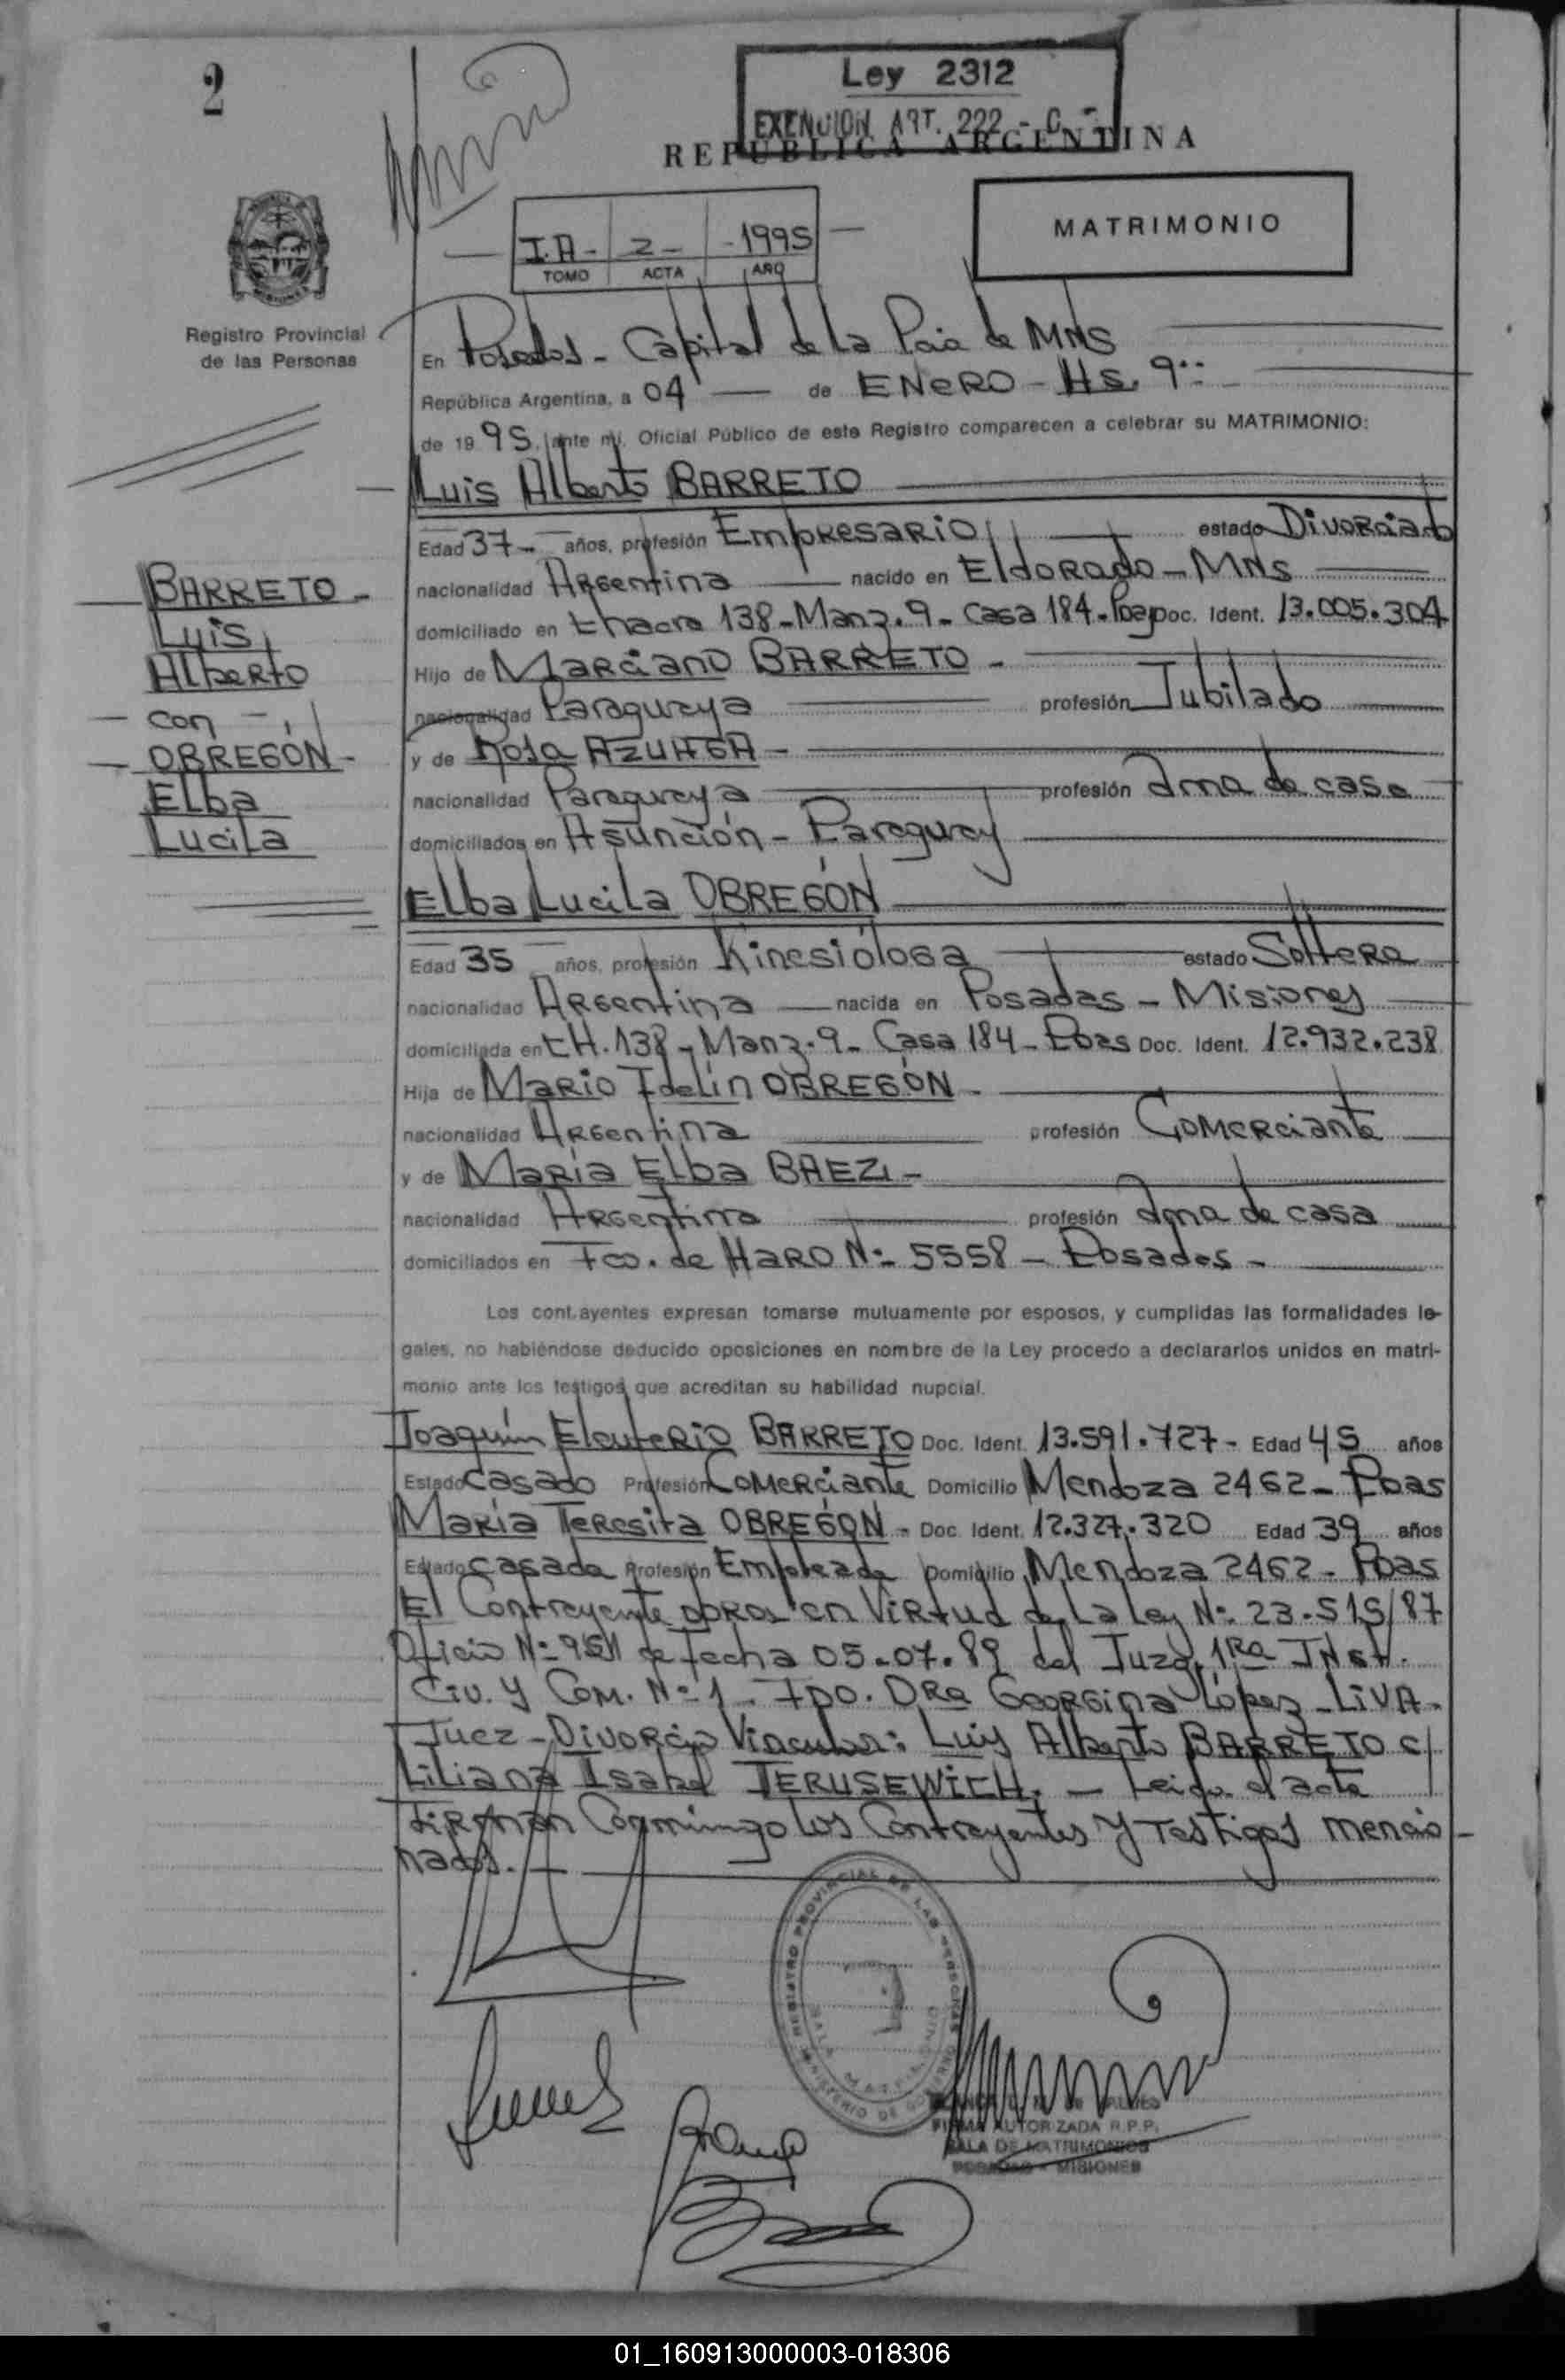 2
Ley 2312
EXENCION ART. 222 - C -
REPUBLICA ARGENTINA
I.A - 2 - - 1995
TOMO ACTA AÑO
MATRIMONIO
Registro Provincial
de las Personas
En Posadas - Capital de La Pcia de MNS
República Argentina, a 04 — de ENERO - HS. 9
de 19 95, ante mí, Oficial Público de este Registro comparecen a celebrar su MATRIMONIO:
Luis Alberto BARRETO
Edad 37 - años, profesión Empresario estado Divorciado
nacionalidad Argentina nacido en Eldorado - MNS
domiciliado en Chacra 138 - Manz. 9 - Casa 184 - Doc. Ident. 13.005.304
Hijo de Marciano BARRETO -
nacionalidad Paraguaya profesión Jubilado
y de Rosa AZUAGA -
nacionalidad Paraguaya profesión Ama de casa
domiciliados en Asunción - Paraguay
BARRETO -
Luis
Alberto
- con -
- OBREGÓN -
Elba
Lucila
Elba Lucila OBREGÓN
Edad 35 años, profesión Kinesióloga estado Soltera
nacionalidad Argentina nacida en Posadas - Misiones
domiciliada en CH. 138 - Manz. 9 - Casa 184 - Pdas Doc. Ident. 12.932.238
Hija de Mario Idelín OBREGÓN -
nacionalidad Argentina profesión Comerciante
y de María Elba BAEZ -
nacionalidad Argentina profesión Ama de casa
domiciliados en Fco. de HARO Nº 5558 - Posadas -
Los contrayentes expresan tomarse mutuamente por esposos, y cumplidas las formalidades le-
gales, no habiéndose deducido oposiciones en nombre de la Ley procedo a declararlos unidos en matri-
monio ante los testigos que acreditan su habilidad nupcial.
Joaquín Eleuterio BARRETO Doc. Ident. 13.591.727 - Edad 45 años
Estado Casado Profesión Comerciante Domicilio Mendoza 2462 - Pdas
María Teresita OBREGÓN - Doc. Ident. 12.327.320 Edad 39 años
Estado casada Profesión Empleada Domicilio Mendoza 2462 - Pdas
El Contrayente en virtud de La Ley Nº 23.515/87
Oficio Nº de fecha 05.07.89 del Juzg. 1RA INST.
Civ. y Com. Nº 1. Fdo. DRA Georgina López - LIVA -
Juez - Divorcio Vincular: Luis Alberto BARRETO c/
Liliana Isabel JERUSEWICH. — Leida el acta
Firman Conmigo los Contrayentes y Testigos mencio
nados. —
REGISTRO PROVINCIAL DE LAS PERSONAS
MINISTERIO DE GOBIERNO
FIRMA AUTORIZADA R.P.P.
SALA DE MATRIMONIOS
POSADAS - MISIONES
01_160913000003-018306